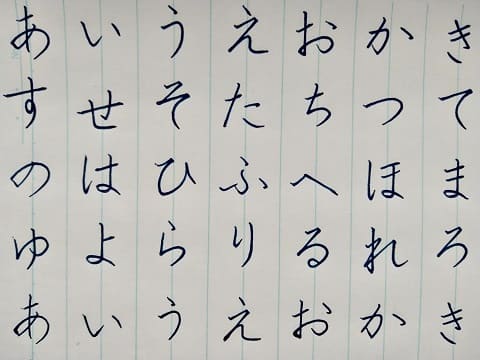 あいうえおかき
すせそたちつて
のはひふへほま
ゆよらりるれろ
あいうえおかき